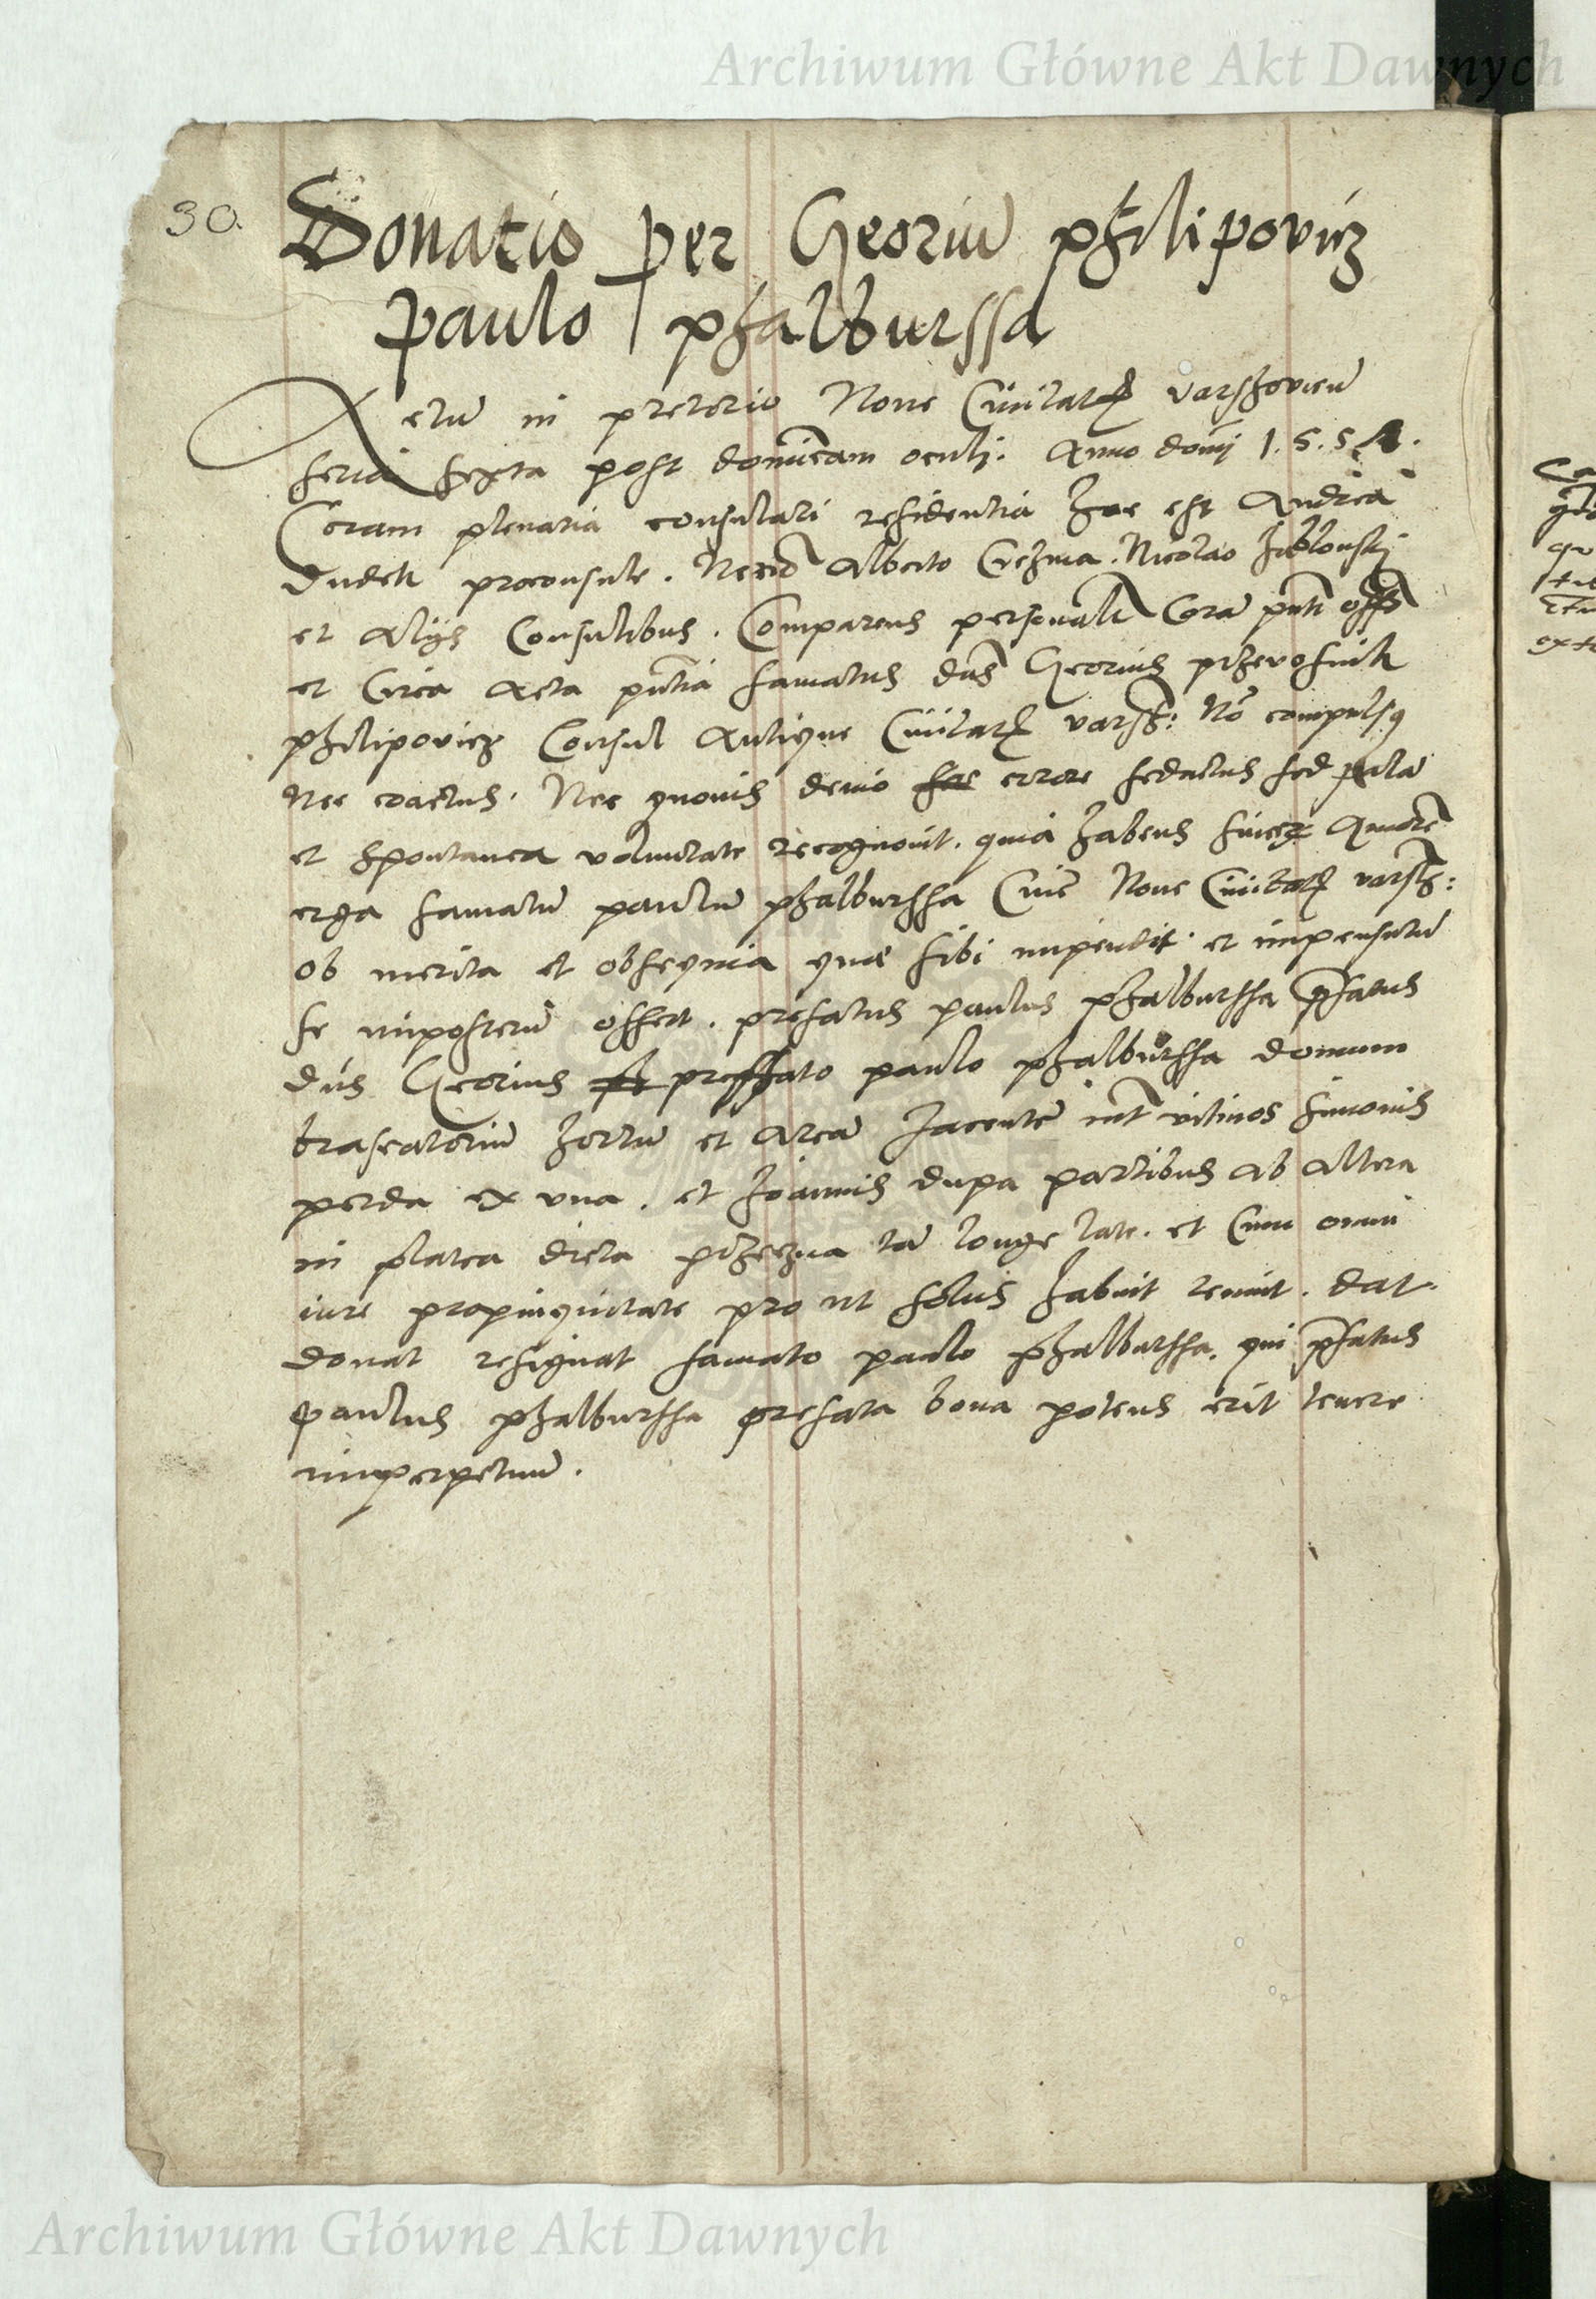 Archiwum Główne Akt Dawnych
30.
Donatio per Georiū philipovicz
paulo phalburssa
Actū in pretorio Noue Ciuitatis varschovien̄
feria sexta post dominicam oculi. Anno domj 1.5.5.4.
Coram plenaria consulari residentia hoc est Andrea
Dudek proconsule. Necnō Alberto Nicolao Jablonskj
et Alijs Consulibus. Comparens personalit̄ Corā pn̄ti offō
et Circa Acta pn̄tia famatus dn̄s Georius przevosnik
philipovicz Consul Antique Ciuitatis varsch: Nō compulsus
nec coactus. Nec quouis deuio errore seductus sed palā
et spontanea voluntate recognouit. quia habens Amorē
erga famatū paulū phalburssa Ciuē Noue Ciuitatis varsch:
ob merita et obsequia que sibi impendit. et impensurū
se imposterū offert. prefatus paulus phalburssa p̄fatus
dn̄s Georius preffato paulo phalburssa domum
braseatoriū hortū et Areā Jacentē int̄ vicinos simonis
perda ex vna. et Joannis dupa partibus ab Altera
in platea dicta przeczna tā longe late. et Cum omni
iure propinquitate pro ut solus habuit tenuit. dat.
donat resignat famato paulo phalburssa. qui p̄fatus
paulus phalburssa prefata bona potens erit tenere
imperpetuū.
Archiwum Główne Akt Dawnych